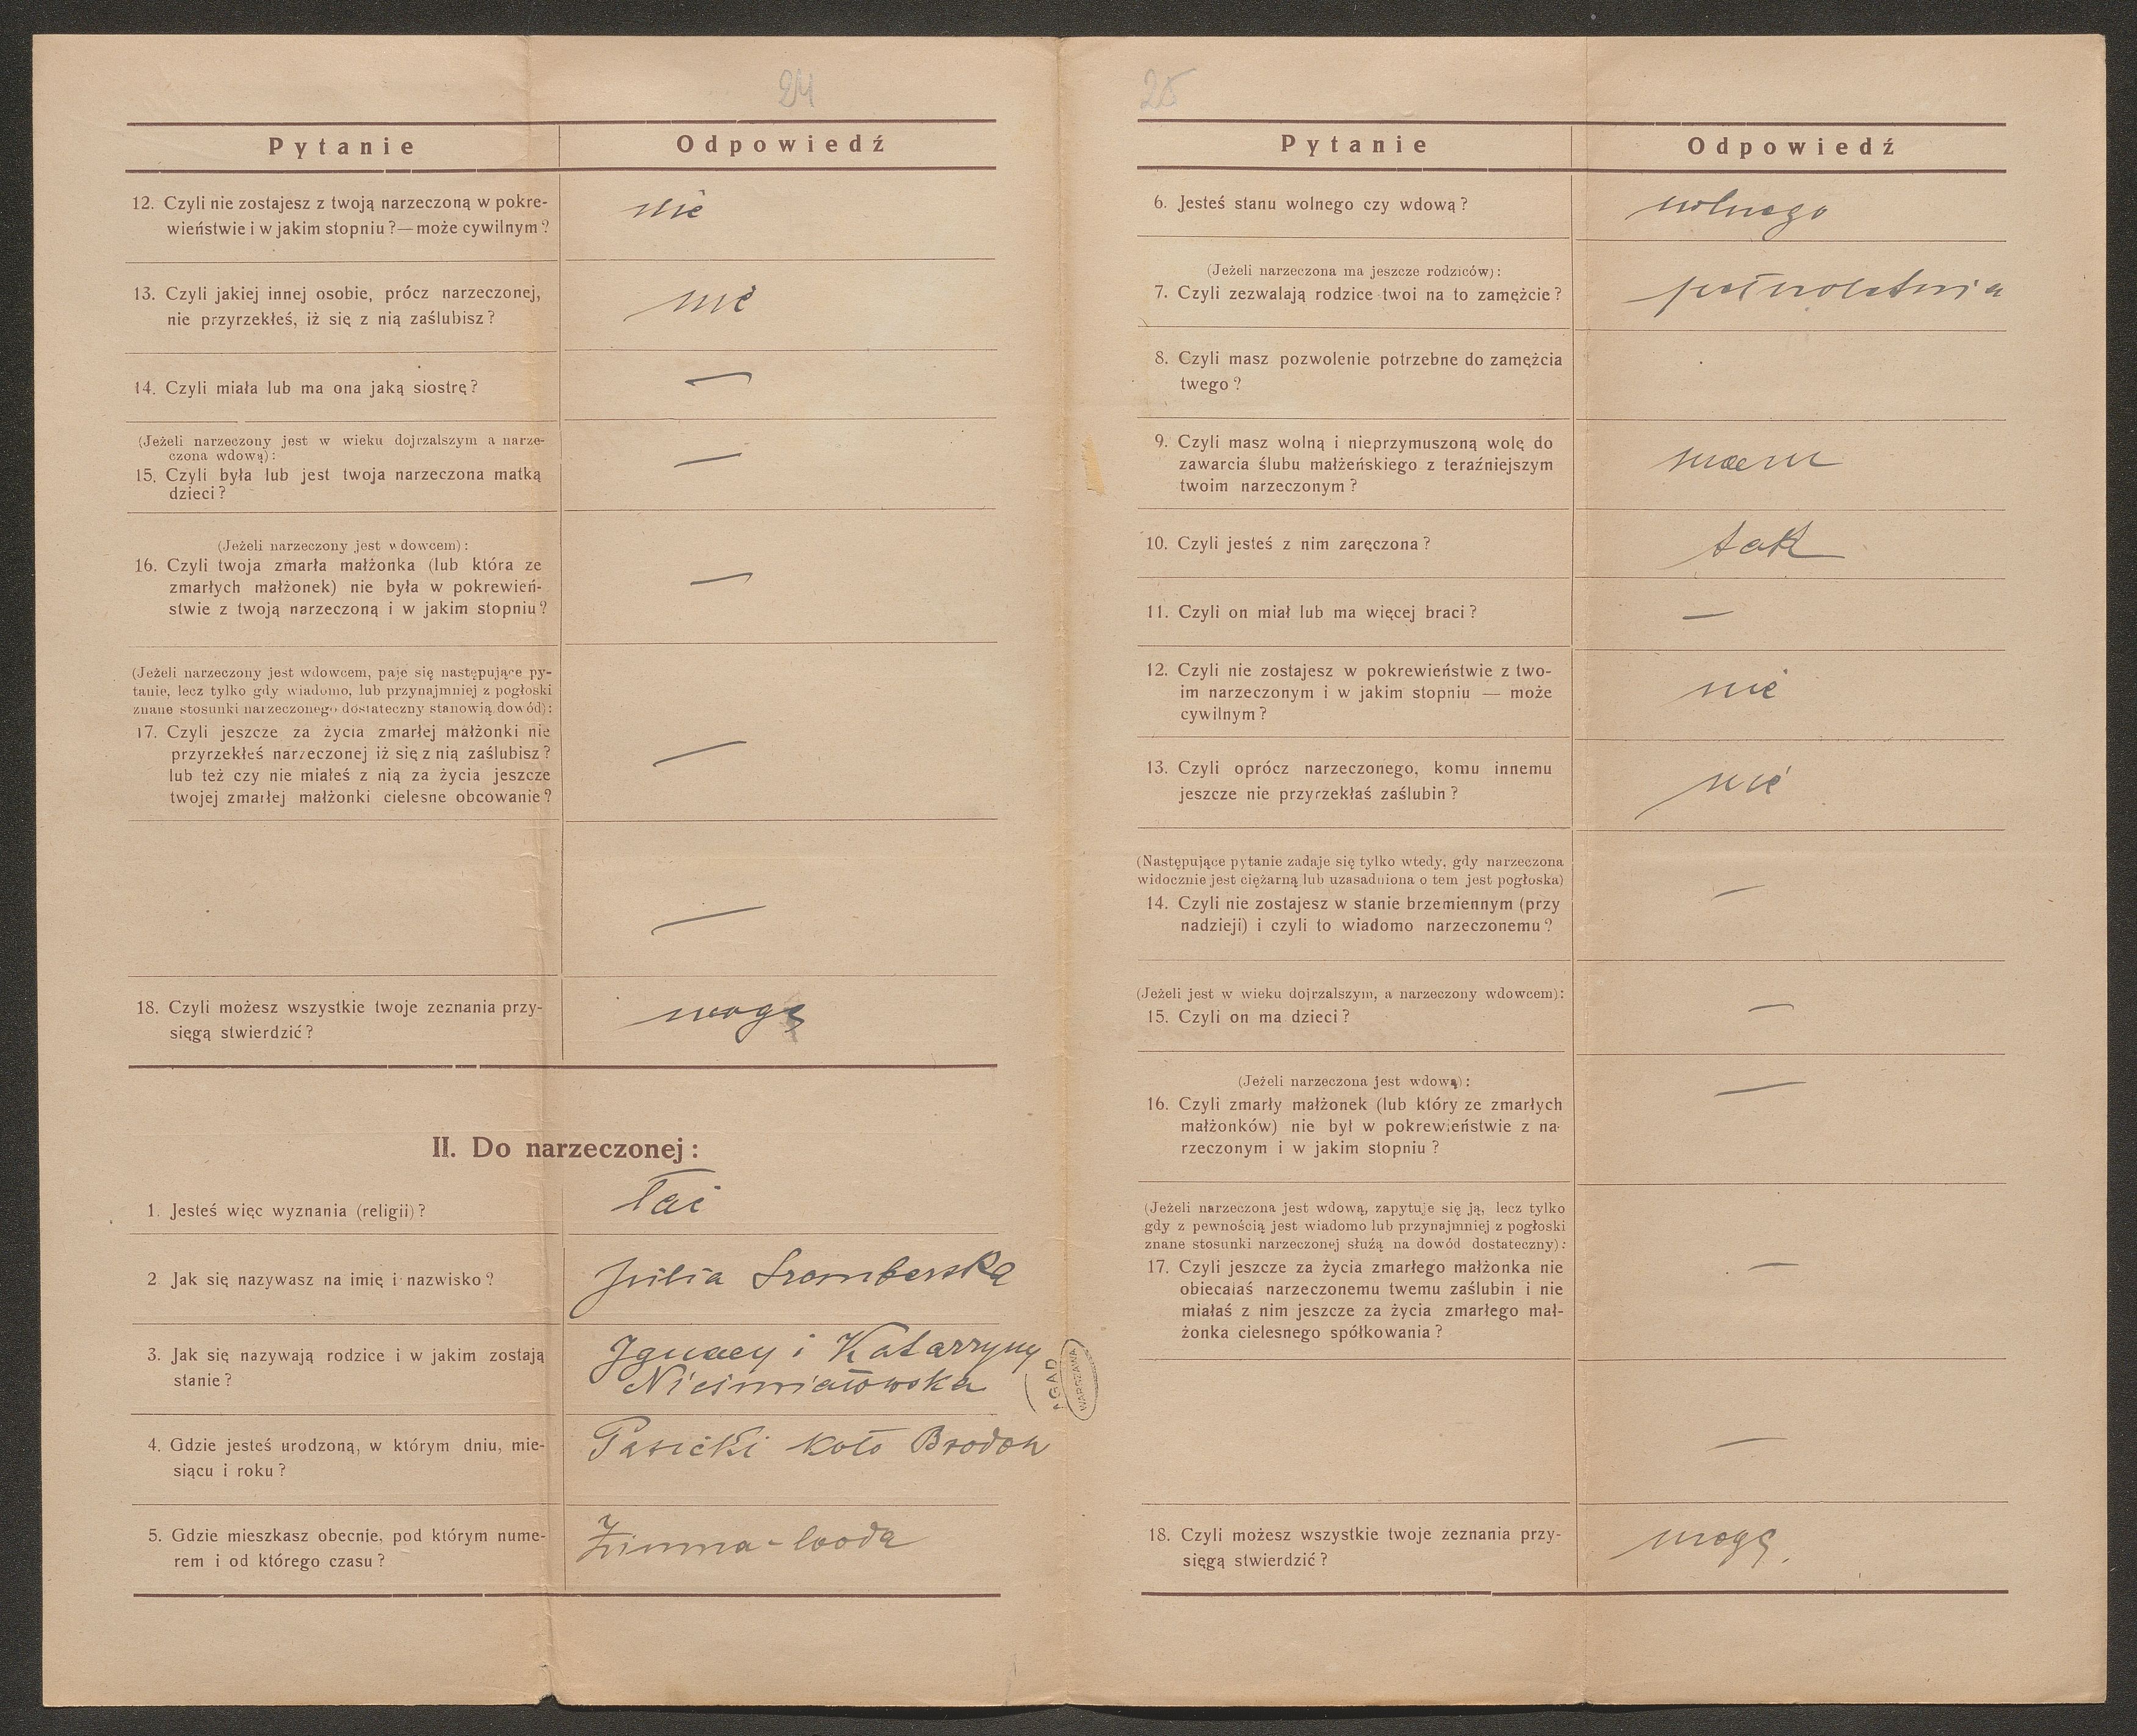 24
Pytanie
Odpowiedź
12. Czyli nie zostajesz z twoją narzeczoną w pokre-
wieństwie i w jakim stopniu?—może cywilnym?
nie
13. Czyli jakiej innej osobie, prócz narzeczonej,
nie przyrzekłeś, iż się z nią zaślubisz?
nie
14. Czyli miała lub ma ona jaką siostrę?
—
(Jeżeli narzeczony jest w wieku dojrzalszym a narze-
czona wdową):
15. Czyli była lub jest twoja narzeczona matką
dzieci?
—
(Jeżeli narzeczony jest wdowcem):
16. Czyli twoja zmarła małżonka (lub która ze
zmarłych małżonek) nie była w pokrewień-
stwie z twoją narzeczoną i w jakim stopniu?
—
(Jeżeli narzeczony jest wdowcem, paje się następujące py-
tanie, lecz tylko gdy wiadomo, lub przynajmniej z pogłoski
znane stosunki narzeczonego dostateczny stanowią dowód):
17. Czyli jeszcze za życia zmarłej małżonki nie
przyrzekłeś narzeczonej iż się z nią zaślubisz?
lub też czy nie miałeś z nią za życia jeszcze
twojej zmarłej małżonki cielesne obcowanie?
—
—
18. Czyli możesz wszystkie twoje zeznania przy-
sięgą stwierdzić?
mogę
II. Do narzeczonej:
1. Jesteś więc wyznania (religii)?
łać
2 Jak się nazywasz na imię i nazwisko?
Julia Sromberska
3. Jak się nazywają rodzice i w jakim zostają
stanie?
Ignacy i Katarzyny
Nieśmiałowska
4. Gdzie jesteś urodzoną, w którym dniu, mie-
siącu i roku?
Pasieki koło Brodów
5. Gdzie mieszkasz obecnie, pod którym nume-
rem i od którego czasu?
Zimna-woda
AGAD
WARSZAWA
25
Pytanie
Odpowiedź
6. Jesteś stanu wolnego czy wdową?
wolnego
(Jeżeli narzeczona ma jeszcze rodziców):
7. Czyli zezwalają rodzice twoi na to zamężcie?
pełnoletnia
8. Czyli masz pozwolenie potrzebne do zamężcia
twego?
9. Czyli masz wolną i nieprzymuszoną wolę do
zawarcia ślubu małżeńskiego z teraźniejszym
twoim narzeczonym?
mam
10. Czyli jesteś z nim zaręczona?
tak
11. Czyli on miał lub ma więcej braci?
—
12. Czyli nie zostajesz w pokrewieństwie z two-
im narzeczonym i w jakim stopniu — może
cywilnym?
nie
13. Czyli oprócz narzeczonego, komu innemu
jeszcze nie przyrzekłaś zaślubin?
nie
(Następujące pytanie zadaje się tylko wtedy, gdy narzeczona
widocznie jest ciężarną lub uzasadniona o tem jest pogłoska)
14. Czyli nie zostajesz w stanie brzemiennym (przy
nadzieji) i czyli to wiadomo narzeczonemu?
—
(Jeżeli jest w wieku dojrzalszym, a narzeczony wdowcem):
15. Czyli on ma dzieci?
—
(Jeżeli narzeczona jest wdową):
16. Czyli zmarły małżonek (lub który ze zmarłych
małżonków) nie był w pokrewieństwie z na-
rzeczonym i w jakim stopniu?
—
(Jeżeli narzeczona jest wdową, zapytuje się ją, lecz tylko
gdy z pewnością jest wiadomo lub przynajmniej z pogłoski
znane stosunki narzeczonej służą na dowód dostateczny):
17. Czyli jeszcze za życia zmarłego małżonka nie
obiecałaś narzeczonemu twemu zaślubin i nie
miałaś z nim jeszcze za życia zmarłego mał-
żonka cielesnego spółkowania?
—
—
18. Czyli możesz wszystkie twoje zeznania przy-
sięgą stwierdzić?
mogę.